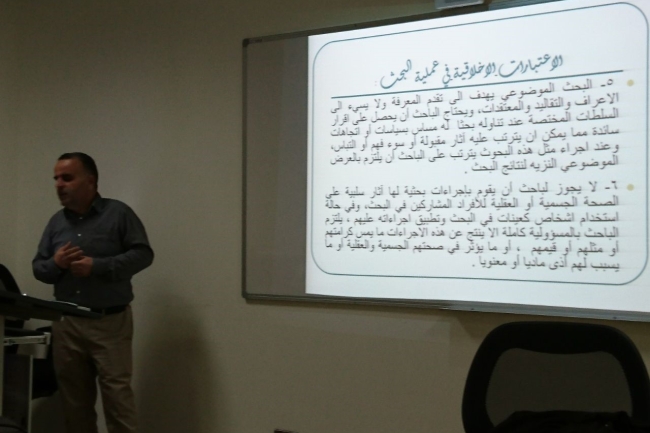 الاعتبارات الاخلاقية في عملية البحث
٥- البحث الموضوعي يهدف الى تقدم المعرفة ولا يسيء الى
الاعراف والتقاليد والمعتقدات، ويحتاج الباحث أن يحصل على اقرار
السلطات المختصة عند تناوله بحثا له مساس بسياسات أو اتجاهات
سائدة مما يمكن ان يترتب عليه آثار مقبولة أو سوء فهم أو التباس،
وعند اجراء مثل هذه البحوث يترتب على الباحث أن يلتزم بالعرض
الموضوعي النزيه لنتائج البحث .
٦- لا يجوز لباحث أن يقوم بإجراءات بحثية لها آثار سلبية على
الصحة الجسمية أو العقلية للأفراد المشاركين في البحث، وفي حالة
استخدام اشخاص كعينات في البحث وتطبيق اجراءاته عليهم ، يلتزم
الباحث بالمسؤولية كاملة الا ينتج عن هذه الاجراءات ما يمس كرامتهم
أو مثلهم أو قيمهم ، أو ما يؤثر في صحتهم الجسمية والعقلية أو ما
يسبب لهم أذى ماديا أو معنويا .